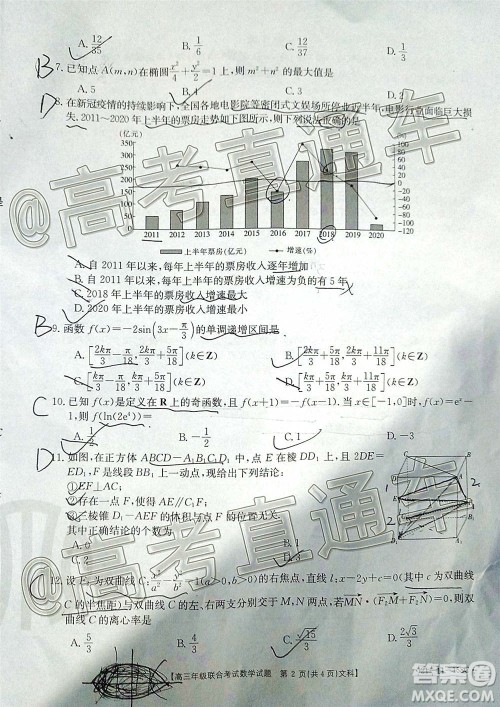 A. 12/35 B. 1/6 C. 12/37 D. 1/3
B 7. 已知点 A(m,n)在椭圆 x²/4 + y²/2 = 1 上,则 m²+n² 的最大值是
A. 5 B. 4 C. 3 D. 2
D 8. 在新冠疫情的持续影响下,全国各地电影院等密闭式文娱场所停业近半年,电影行业面临巨大损
失. 2011~2020 年上半年的票房走势如下图所示,则下列说法正确的是
(亿元) (%)
350
300
250
200
150
100
50
0
80
60
40
20
0
-20
-40
-60
-80
-100
-120
2011 2012 2013 2014 2015 2016 2017 2018 2019 2020
上半年票房(亿元) 增速(%)
A. 自 2011 年以来,每年上半年的票房收入逐年增加
B. 自 2011 年以来,每年上半年的票房收入增速为负的有 5 年
C. 2018 年上半年的票房收入增速最大
D. 2020 年上半年的票房收入增速最小
B 9. 函数 f(x)=-2sin(3x-π/3)的单调递增区间是
A. [2kπ/3-π/18, 2kπ/3+5π/18](k∈Z) B. [2kπ/3+5π/18, 2kπ/3+11π/18](k∈Z)
C. [kπ/3-π/18, kπ/3+5π/18](k∈Z) D. [kπ/3+5π/18, kπ/3+11π/18](k∈Z)
C 10. 已知 f(x)是定义在 R 上的奇函数,且 f(x+1)=-f(x-1). 当 x∈[-1,0]时, f(x)=eˣ-
1,则 f(ln(2e⁴))=
A. 1/2 B. -1/2 C. 1 D. -3
D 11. 如图,在正方体 ABCD-A₁B₁C₁D₁ 中,点 E 在棱 DD₁ 上,且 2DE=
ED₁, F 是线段 BB₁ 上一动点,现给出下列结论:
①EF⊥AC;
②存在一点 F,使得 AE∥C₁F;
③三棱锥 D₁-AEF 的体积与动点 F 的位置无关.
其中正确结论的个数为
A. 0 B. 1
C. 2
C 12. 设 F₂ 为双曲线 C: x²/a² - y²/b² = 1(a>0,b>0)的右焦点,直线 l: x-2y+c=0(其中 c 为双曲线
C 的半焦距)与双曲线 C 的左、右两支分别交于 M,N 两点,若 MN·(F₂M+F₂N)=0,则双曲线
C 的离心率是
A. 5/3 B. 4/3 C. √15/3 D. 2√3/3
【高三年级联合考试数学试题 第 2 页(共 4 页)文科】
@高考直通车
@高考直通车
答案圈
MXQE.COM